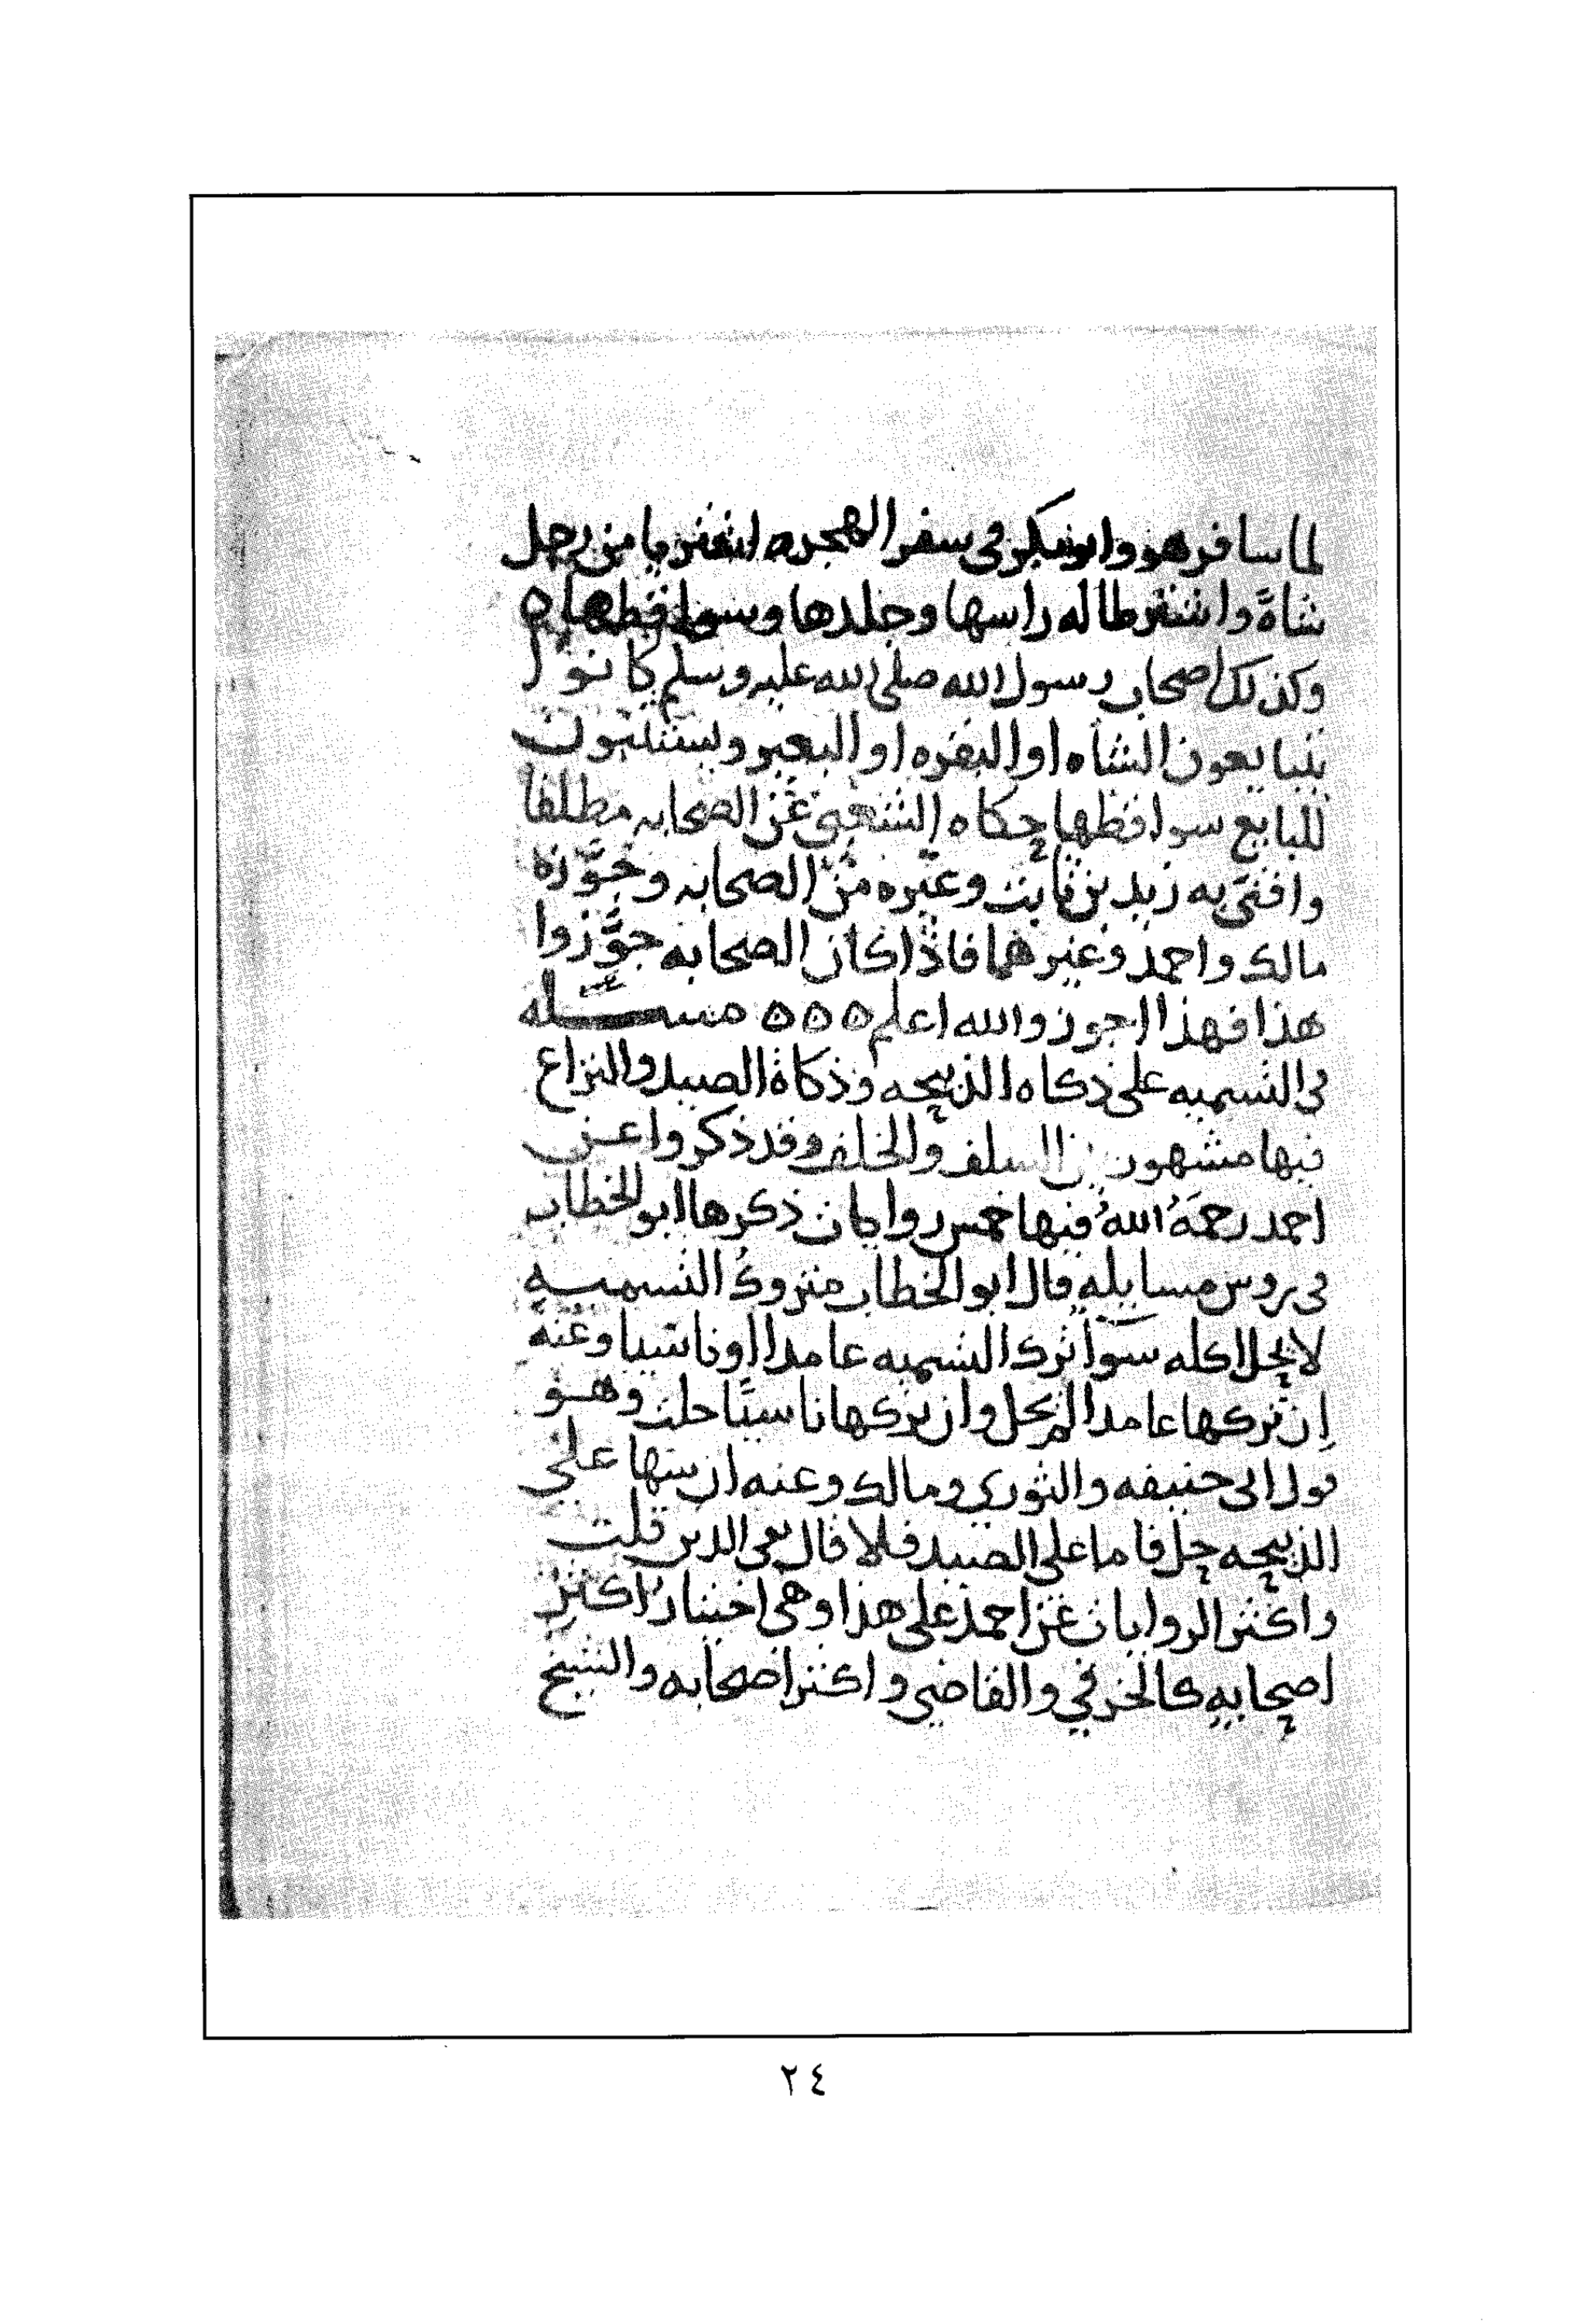 لما سافر هو وابو بكر في سفر الهجره اشتريا من رجل
شاةً واشترطا له راسها وجلدها وسواقطها ه
وكذلك اصحاب رسول الله صلى الله عليه وسلم كانوا
يتبايعون الشاه او البقره او البعير ويستثنون
للبايع سواقطها حكاه الشعبي عن الصحابه مطلقا
وافتى به زيد بن ثابت وغيره من الصحابه وجوَّزه
مالك واحمد وغيرهما فاذا كان الصحابه جوَّزوا
هذا فهذا اجوز والله اعلم ه ه ه مسـله
في التسميه على ذكاه الذبيحه وذكاة الصيد والنزاع
فيها مشهور بين السلف والخلف وقد ذكروا عن
احمد رحمَهُ اللهُ فيها خمس روايات ذكرها ابو الخطاب
في روس مسايله قال ابو الخطاب متروك التسميه
لا يحل اكله سوآ ترك التسميه عامدا او ناسيا وعنه
إن تركها عامدا لم يحل وان تركها ناسيًا حلت وهو
قول ابي حنيفه والثوري ومالك وعنه ان نسيها على
الذبيحه حل فاما على الصيد فلا قال تقي الدين قلت
واكثر الروايات عن احمد على هذا وهي اختيار اكثر
اصحابه كالخرقي والقاضي واكثر اصحابه والشيخ
٢٤